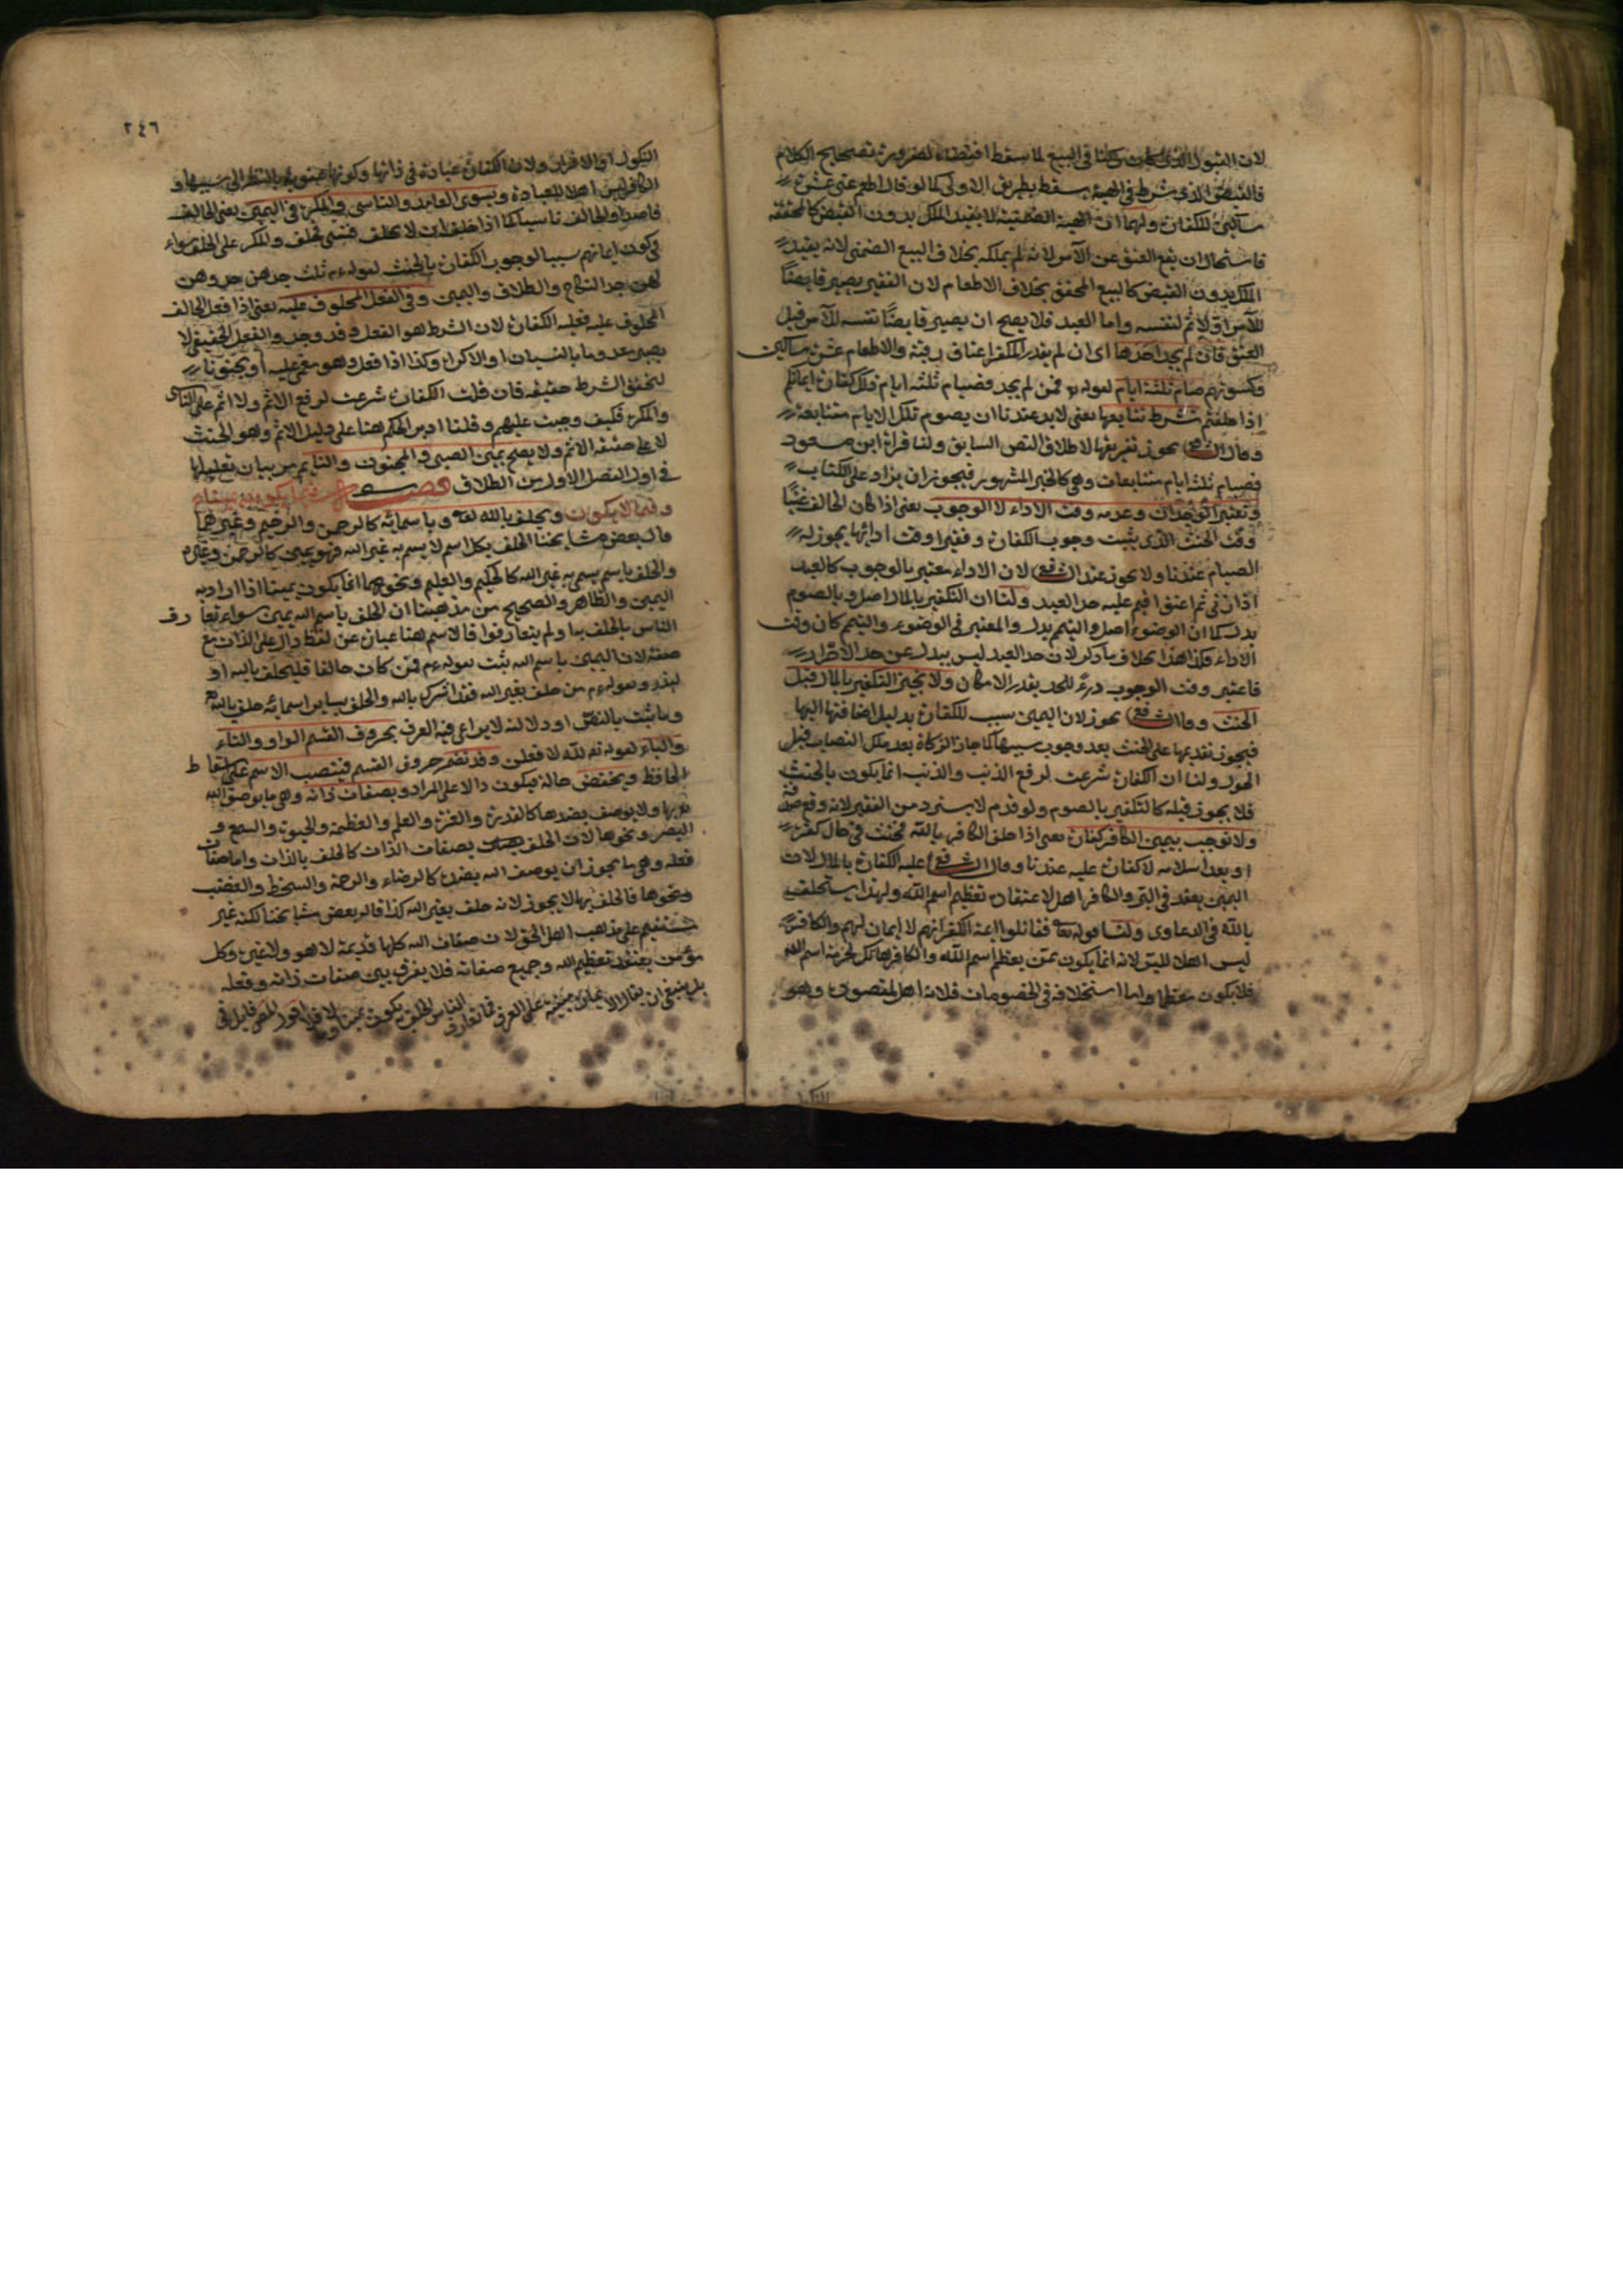 لان القبول الذى كان ركنا فى البيع لما سقط اقتضاء لضرورة تصحيح الكلام
فالقبض الذى شرط فى الهبة يسقط بطريق الاولى كما لو قال اطعم عنى عشرة
مساكين للكفارة ولهما ان الهبة الضمنية لا يفيد الملك بدون القبض كالمحققة
فاستحال ان يقع العتق عن الآمر لانه لم يملكه بخلاف البيع الضمنى لانه يفيد
الملك بدون القبض كالبيع المحقق بخلاف الاطعام لان الفقير يصير قابضا
للآمر اولا ثم لنفسه واما العبد فلا يصح ان يصير قابضا نفسه للآمر قبل
العتق فان لم يجد احدها اى ان لم يقدر المكفر اعتاق رقبة والاطعام عشرة مساكين
وكسوتهم صام ثلثة ايام لقوله فمن لم يجد فصيام ثلثة ايام ذلك كفارة ايمانكم
اذا حلفتم بشرط تتابعها يعنى لا بد عندنا ان يصوم تلك الايام متتابعة
وقال الشافعى يجوز تفريقها لاطلاق النص السابق ولنا قراءة ابن مسعود
فصيام ثلثة ايام متتابعات وهى كالخبر المشهور فيجوز ان يزاد على الكتاب
وتعتبر الوجدان وعدمه وقت الاداء لا الوجوب يعنى اذا كان الحالف غنيا
وقت الحنث الذى يثبت وجوب الكفارة وفقيرا وقت ادائها يجوز له
الصيام عندنا ولا يجوز عند الشافعى لان الاداء معتبر بالوجوب كالعبد
اذا زنى ثم اعتق اقيم عليه حد العبيد ولنا ان التكفير بالمال اصل وبالصوم
بدل كما ان الوضوء اصل والتيمم بدل والمعتبر فى الوضوء والتيمم كان وقت
الاداء فكذا هذا بخلاف ما ذكر لان حد العبيد ليس ببدل عن حد الاحرار
فاعتبر وقت الوجوب درء للحد بقدر الامكان ولا يجيز التكفير بالمال قبل
الحنث وقال الشافعى يجوز لان اليمين سبب للكفارة بدليل اضافتها اليها
فيجوز تقديمها على الحنث بعد وجوب سببها كما جاز الزكاة بعد ملك النصاب قبل
الحول ولنا ان الكفارة شرعت لرفع الذنب والذنب انما يكون بالحنث
فلا يجوز قبله كالتكفير بالصوم ولو قدم لا يسترد من الفقير لانه وقع صدقة
ولا نوجب بيمين الكافر كفارة يعنى اذا حلف الكافر بالله فحنث فى حال كفره
او بعد اسلامه لا كفارة عليه عندنا وقال الشافعى عليه الكفارة بالمال لان
اليمين يعقد فى البر والكافر اهل لاعتقاده تعظيم اسم الله ولهذا يستحلف
بالله فى الدعاوى ولنا قوله تعا فقاتلوا ائمة الكفر انهم لا ايمان لهم والكافر
ليس اهلا لليمين لانه انما يكون بمن يعظم اسم الله والكافر هاتك لحرمة اسم الله
فلا يكون معظما واما استحلافه فى الخصومات فلانه اهل لمقصوده وهو
٢٤٦
النكول او الاقرار ولان الكفارة عبادة فى ذاتها وكونها عقوبة بالنظر الى سببها و
الكافر ليس اهلا للعبادة ويسوى العامد والناسى والمكره فى اليمين يعنى الحالف
قاصدا والحالف ناسيا كما اذا حلف ان لا يحلف فنسى فحلف والمكره على الحلف سواء
فى كون ايمانهم سببا لوجوب الكفارة بالحنث لقوله ء م ثلث جدهن جد وهزلهن
جد النكاح والطلاق واليمين وفى الفعل المحلوف عليه يعنى اذا فعل الحالف
المحلوف عليه فعليه الكفارة لان الشرط هو الفعل وقد وجد والفعل الحقيقى لا
يصير معدوما بالنسيان او الاكراه وكذا اذا فعل وهو مغمى عليه او مجنونا
لتحقق الشرط حقيقة فان قلت الكفارة شرعت لرفع الاثم ولا اثم على الناسى
والمكره فكيف وجبت عليهم وقلنا ادير الحكم هنا على دليل الاثم وهو الحنث
لا على حقيقة الاثم ولا يصح يمين الصبى والمجنون والنائم مر بيان تعليلها
فى اول الفصل الاول من الطلاق فصل فيما يكون يمينا
وفيما لا يكون ويحلف بالله تعا وباسمائه كالرحمن والرحيم وغيرهما
قال بعض مشايخنا الحلف بكل اسم لا يسم به غير الله فهو يمين كالرحمن وغيره
والحلف باسم يسمى به غير الله كالحكيم والعليم ونحوهما انما يكون يمينا اذا اراد به
اليمين والظاهر والصحيح من مذهبنا ان الحلف باسم الله يمين سواء تعارف
الناس بالحلف بها ولم يتعارفوا فالاسم هنا عبارة عن لفظ دال على الذات مع
صفة لان اليمين باسم الله ثبت بقوله ء م فمن كان حالفا فليحلف بالله او
ليذر وبقوله ء م من حلف بغير الله فقد اشرك بالله والحلف بساير اسمائه حلف بالله
وما ثبت بالنص او دلالته لا يراعى فيه العرف بحروف القسم الواو والتاء
والباء لقوله تعا لله لا فعلن وقد تضمر حروف القسم فينتصب الاسم على اسقاط
الخافظ ويخفض حالة فيكون دالا على المراد وبصفات ذاته وهى ما يوصف الله
تعا بها ولا يوصف بضدها كالقدرة والعزة والعلم والعظمة والحيوة والسمع و
البصر ونحوها لان الحلف بصفات الذات كالحلف بالذات واما صفات
فعله وهى ما يجوز ان يوصف الله بضده كالرضاء والرحمة والسخط والغضب
ونحوها فالحلف بها لا يجوز لانه حلف بغير الله كذا قاله بعض مشايخنا لكنه غير
مستقيم على مذهب اهل الحق لان صفات الله كلها قديمة لا هو ولا غيره وكل
مؤمن يعتقد تعظيم الله وجميع صفاته فلا يفرق بين صفات ذاته وفعله
بل ينبغى ان يقال الايمان مبنية على العرف فما تعارف الناس الحلف يكون يمينا